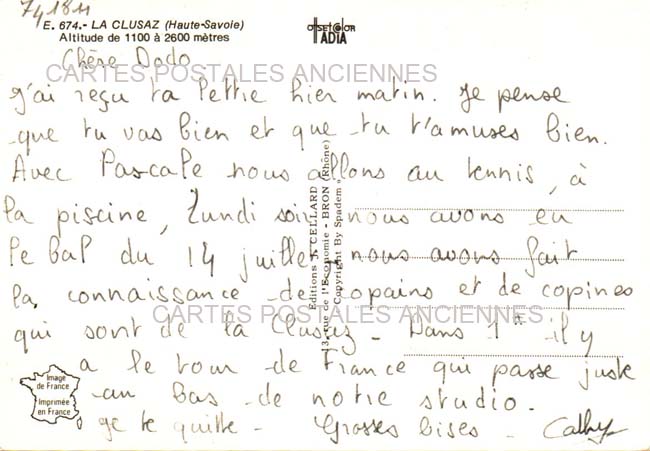 74184
E. 674.- LA CLUSAZ (Haute-Savoie)
Altitude de 1100 à 2600 mètres
offset color
ADIA
Chère Dodo
CARTES POSTALES ANCIENNES
J'ai reçu ta lettre hier matin. Je pense
que tu vas bien et que tu t'amuses bien.
Avec Pascale nous allons au tennis, à
la piscine, Lundi soir nous avons eu
le bal du 14 juillet, nous avons fait
la connaissance de copains et de copines
CARTES POSTALES ANCIENNES
qui sont de la Clusaz - Dans 1 il y
a le tour de France qui passe juste
au bas de notre studio.
je te quitte - Grosses bises - Cathy
Editions J. CELLARD
13, rue de l'Economie - BRON (Rhône)
Copyright By Spadem
Image
de France
Imprimée
en France